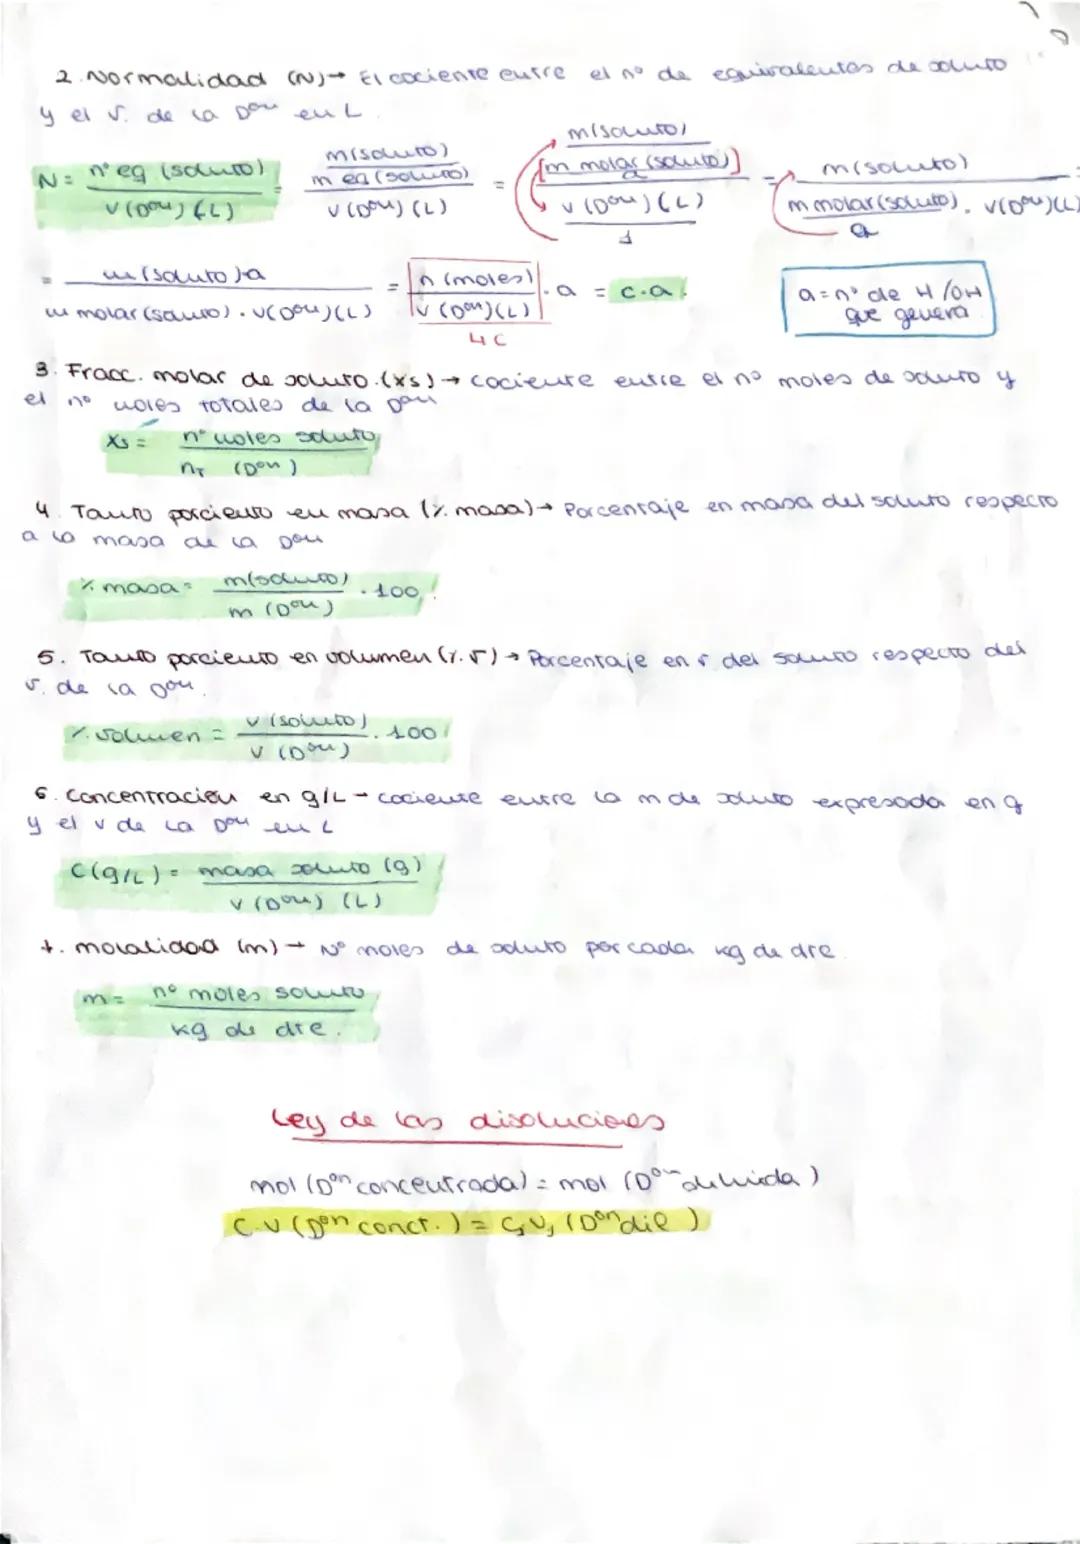 2. Normalidad (N) → El cociente entre el nº de equivalentes de soluto
y el v. de la Don en L.
N = nº eq (soluto) / v (Don) (L) = m(soluto) / m eq (soluto) / v (Don) (L) = m(soluto) / [m molar (soluto)] / a / v (Don) (L) / 1 = m(soluto) / m molar (soluto) . v(Don)(L) / a =
= m (soluto) a / m molar (soluto) . v(Don) (L) = n (moles) / v (Don)(L) . a = c.a.
↳ C
a = nº de H / OH
que genera
3. Fracc. molar de soluto. (Xs) → cociente entre el nº moles de soluto y
el nº moles totales de la Don
Xs = nº moles soluto / nT (Don)
4. Tanto porciento en masa (% masa) → Porcentaje en masa del soluto respecto
a la masa de la Don
% masa = m(soluto) / m (Don) . 100
5. Tanto porciento en volumen (%. v) → Porcentaje en v del soluto respecto del
v. de la Don.
%. volumen = v (soluto) / v (Don) . 100
6. Concentración en g/L - cociente entre la m de soluto expresada en g
y el v de la Don en L
C(g/L) = masa soluto (g) / v (Don) (L)
7. molalidad (m) → Nº moles de soluto por cada kg de dte.
m = nº moles soluto / kg de dte.
Ley de las disoluciones
mol (Don concentrada) = mol (Don diluida)
C.V (Don conct.) = C₁V₁ (Don dil)